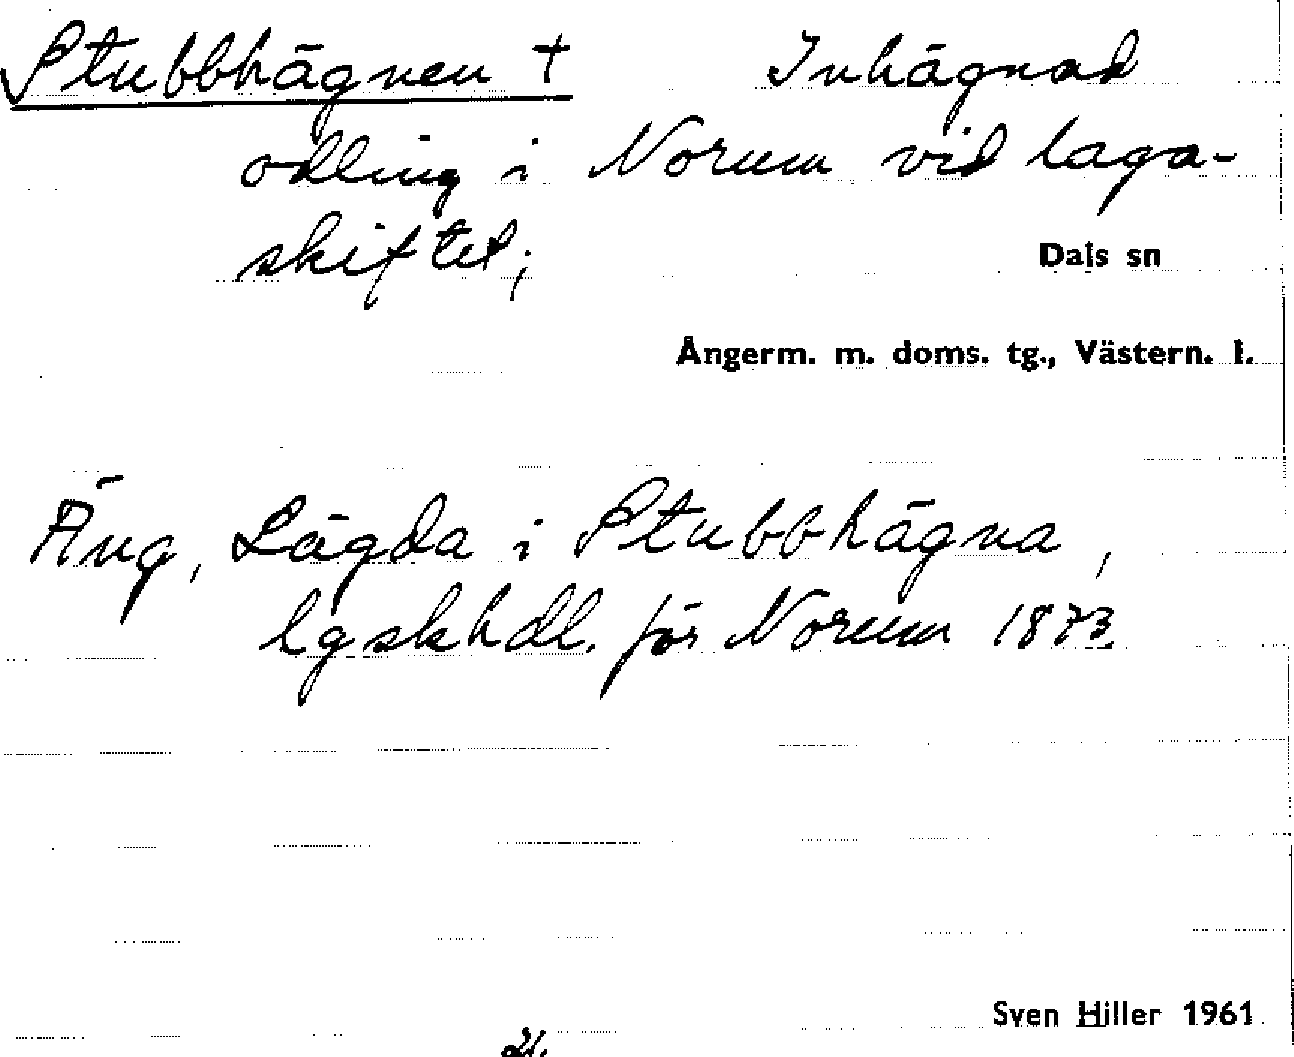 Stubbhägnen † Inhägnad
odling i Norum vid laga-
skiftet;
Dals sn
Ångerm. m. doms. tg., Västern. l.
Äng, Lägda i Stubbhägna,
lgskhdl. för Norum 1873.
Sven Hiller 1961